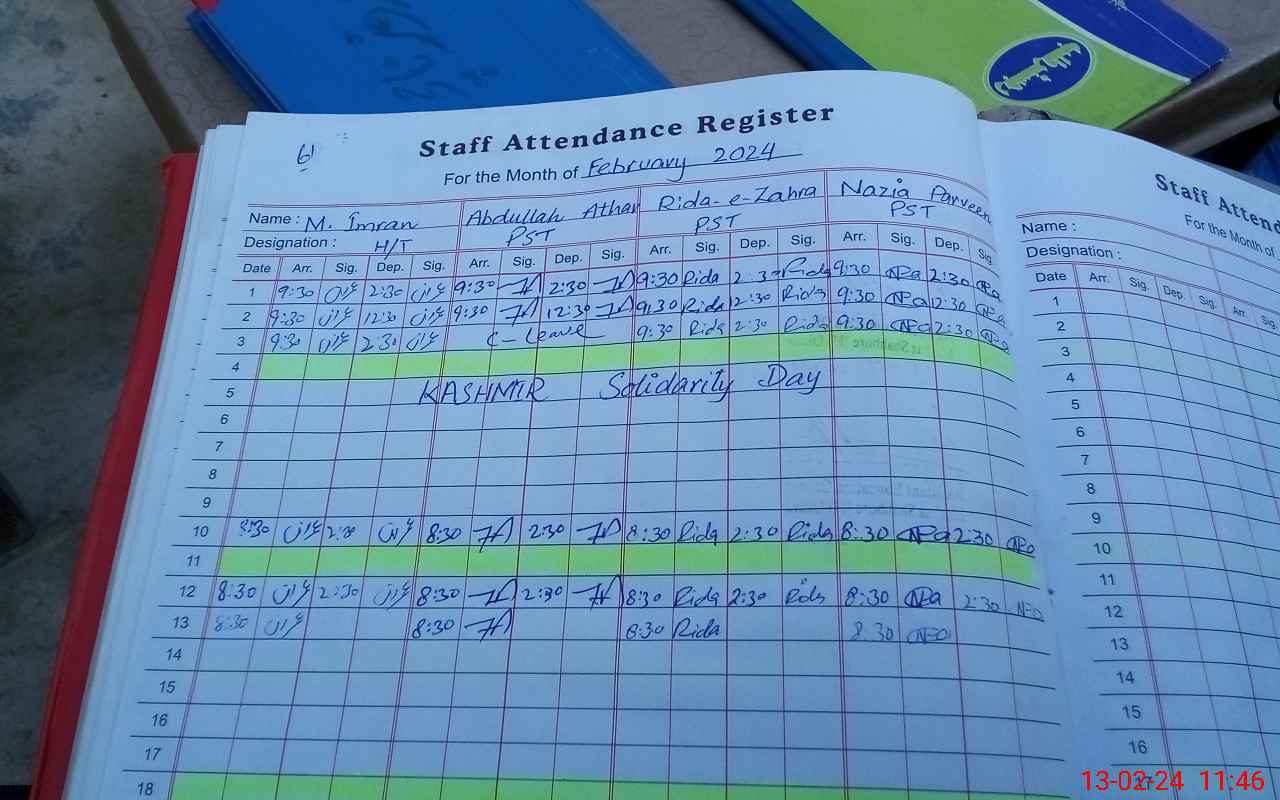 61
Staff Attendance Register
For the Month of February 2024
Name : M. Imran Abdullah Athar Rida-e-Zahra Nazia Parveen
Designation : H/T PST PST PST
Date Arr. Sig. Dep. Sig. Arr. Sig. Dep. Sig. Arr. Sig. Dep. Sig. Arr. Sig. Dep. Sig.
1 9:30 عمران 2:30 عمران 9:30 2:30 9:30 Rida 2:30 Rida 9:30 NPa 2:30 NPa
2 9:30 عمران 12:30 عمران 9:30 12:30 9:30 Rida 12:30 Rida 9:30 NPa 12:30 NPa
3 9:30 عمران 2:30 عمران C-Leave 9:30 Rida 2:30 Rida 9:30 NPa 2:30 NPa
4
5 KASHMIR Solidarity Day
6
7
8
9
10 8:30 عمران 2:30 عمران 8:30 2:30 8:30 Rida 2:30 Rida 8:30 NPa 2:30 NPa
11
12 8:30 عمران 2:30 عمران 8:30 2:30 8:30 Rida 2:30 Rida 8:30 NPa 2:30 NPa
13 8:30 عمران 8:30 8:30 Rida 8:30 NPa
14
15
16
17
18
Staff Attend
For the Month of
Name :
Designation :
Date Arr. Sig. Dep. Sig. Arr. Sig.
1
2
3
4
5
6
7
8
9
10
11
12
13
14
15
16
17
13-02-24 11:46